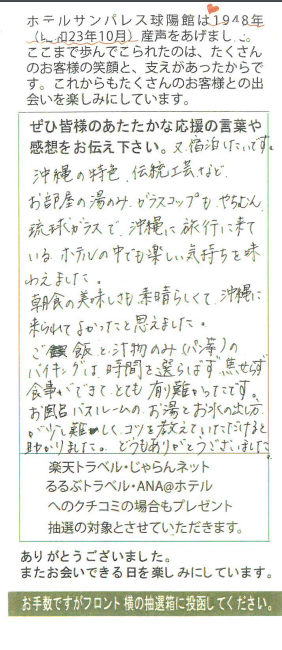 ホテルサンパレス球陽館は1948年
(昭和23年10月)産声をあげました。
ここまで歩んでこられたのは、たくさん
のお客様の笑顔と、支えがあったからで
す。これからもたくさんのお客様との出
会いを楽しみにしています。
ぜひ皆様のあたたかな応援の言葉や
感想をお伝え下さい。又宿泊したいです。
沖縄の特色、伝統工芸など、
お部屋の湯のみ、ガラスコップも やちむん、
琉球ガラスで、沖縄に旅行に来て
いる、ホテルの中でも楽しい気持ちを味
わえました。
朝食の美味しさも素晴らしくて、沖縄に
来られてよかったと思えました。
ご飯と汁物のみ(パン等)の
バイキングは、時間を選らばず、焦せらず
食事ができて、とても有難かったです。
お風呂バスルームのお湯とお水の出し方
が少し難しく、コツを教えていただけると
助かりました。どうもありがとうございました
楽天トラベル・じゃらんネット
るるぶトラベル・ANA@ホテル
へのクチコミの場合もプレゼント
抽選の対象とさせていただきます。
ありがとうございました。
またお会いできる日を楽しみにしています。
お手数ですがフロント横の抽選箱に投函してください。